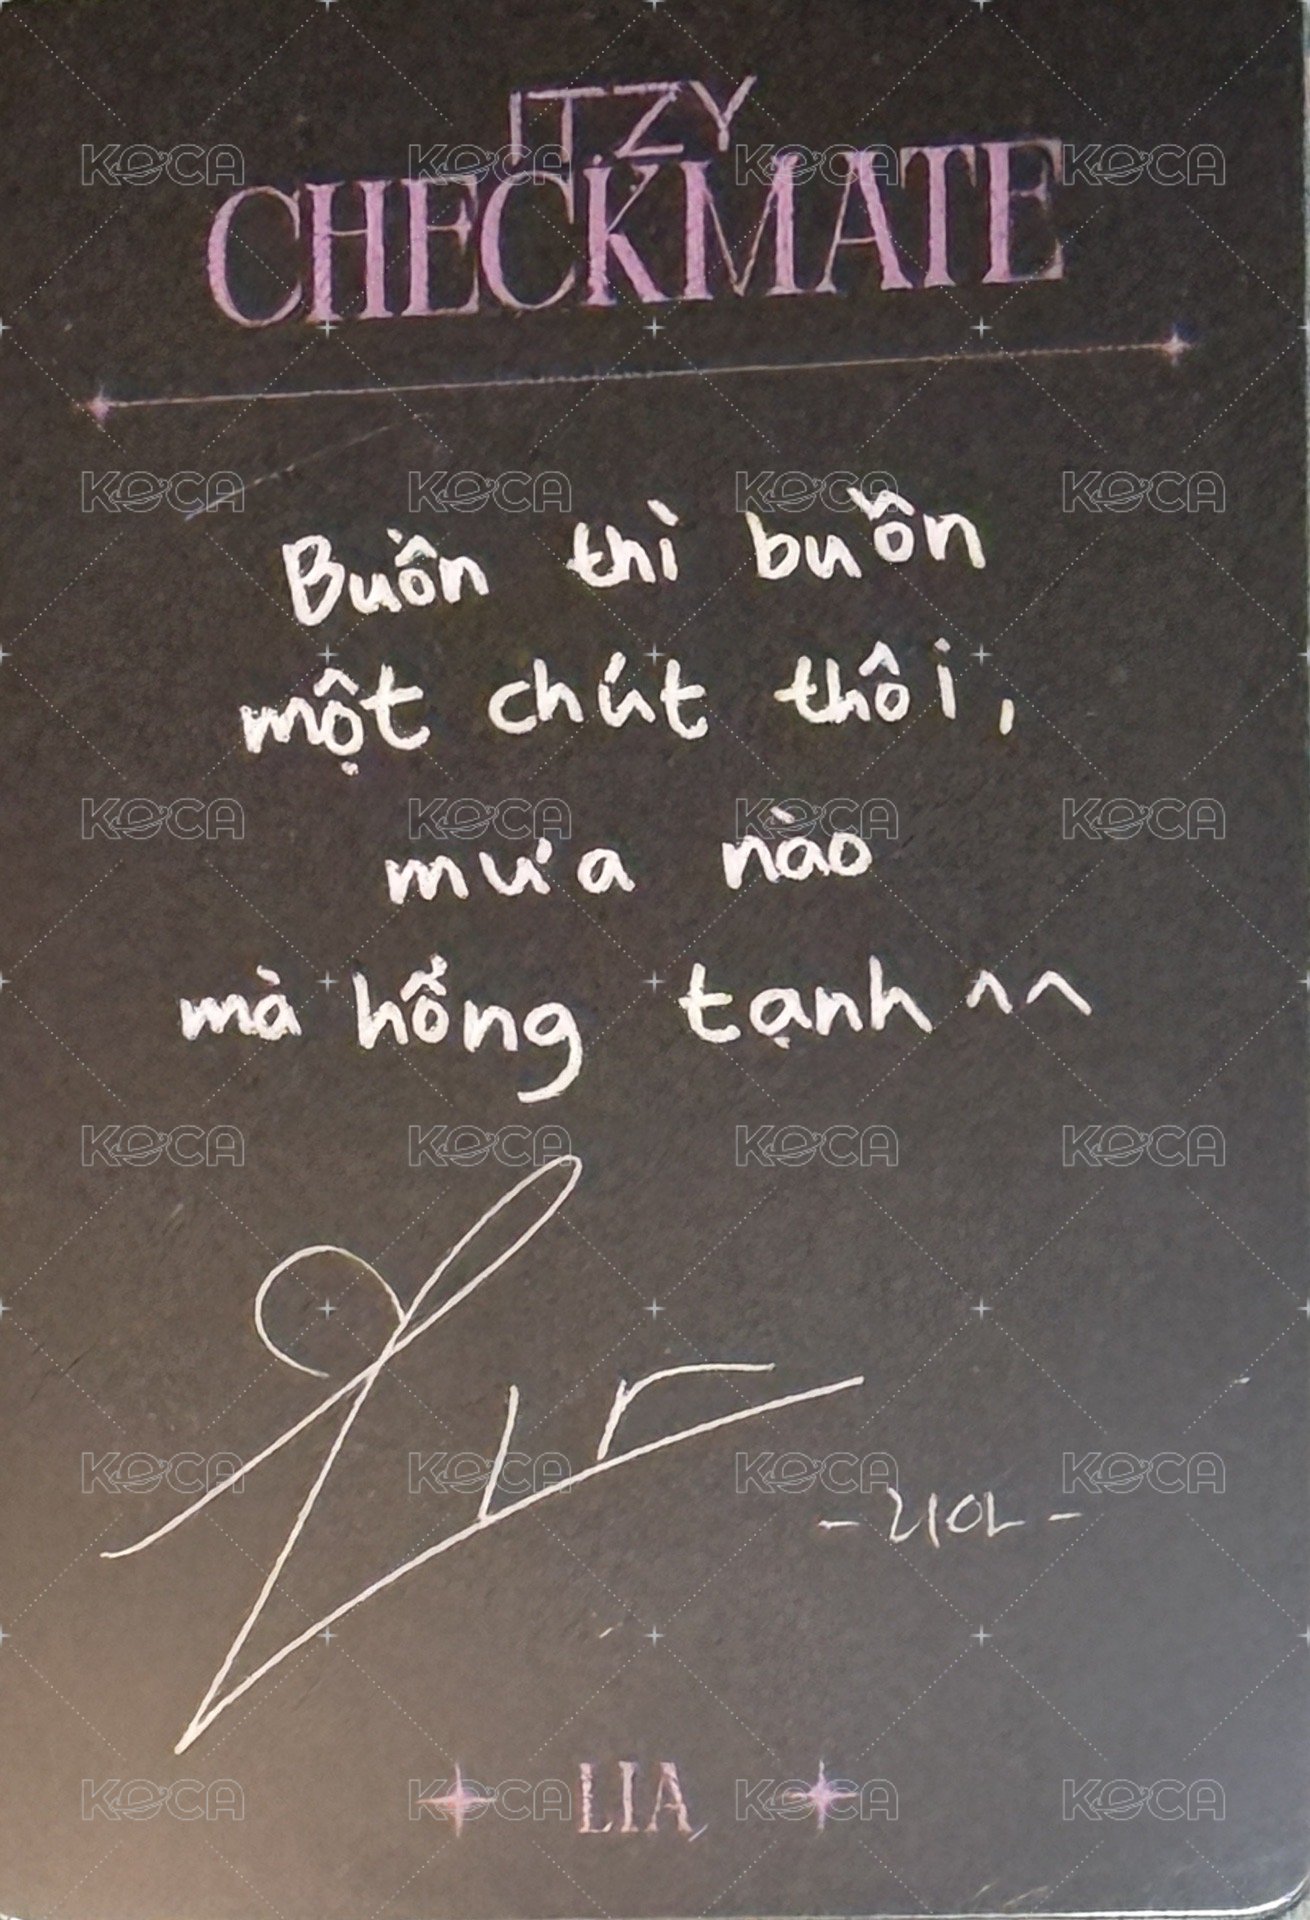 ITZY
CHECKMATE
Buồn thì buồn
một chút thôi,
mưa nào
mà hổng tạnh ^^
-리아-
LIA
KOCA